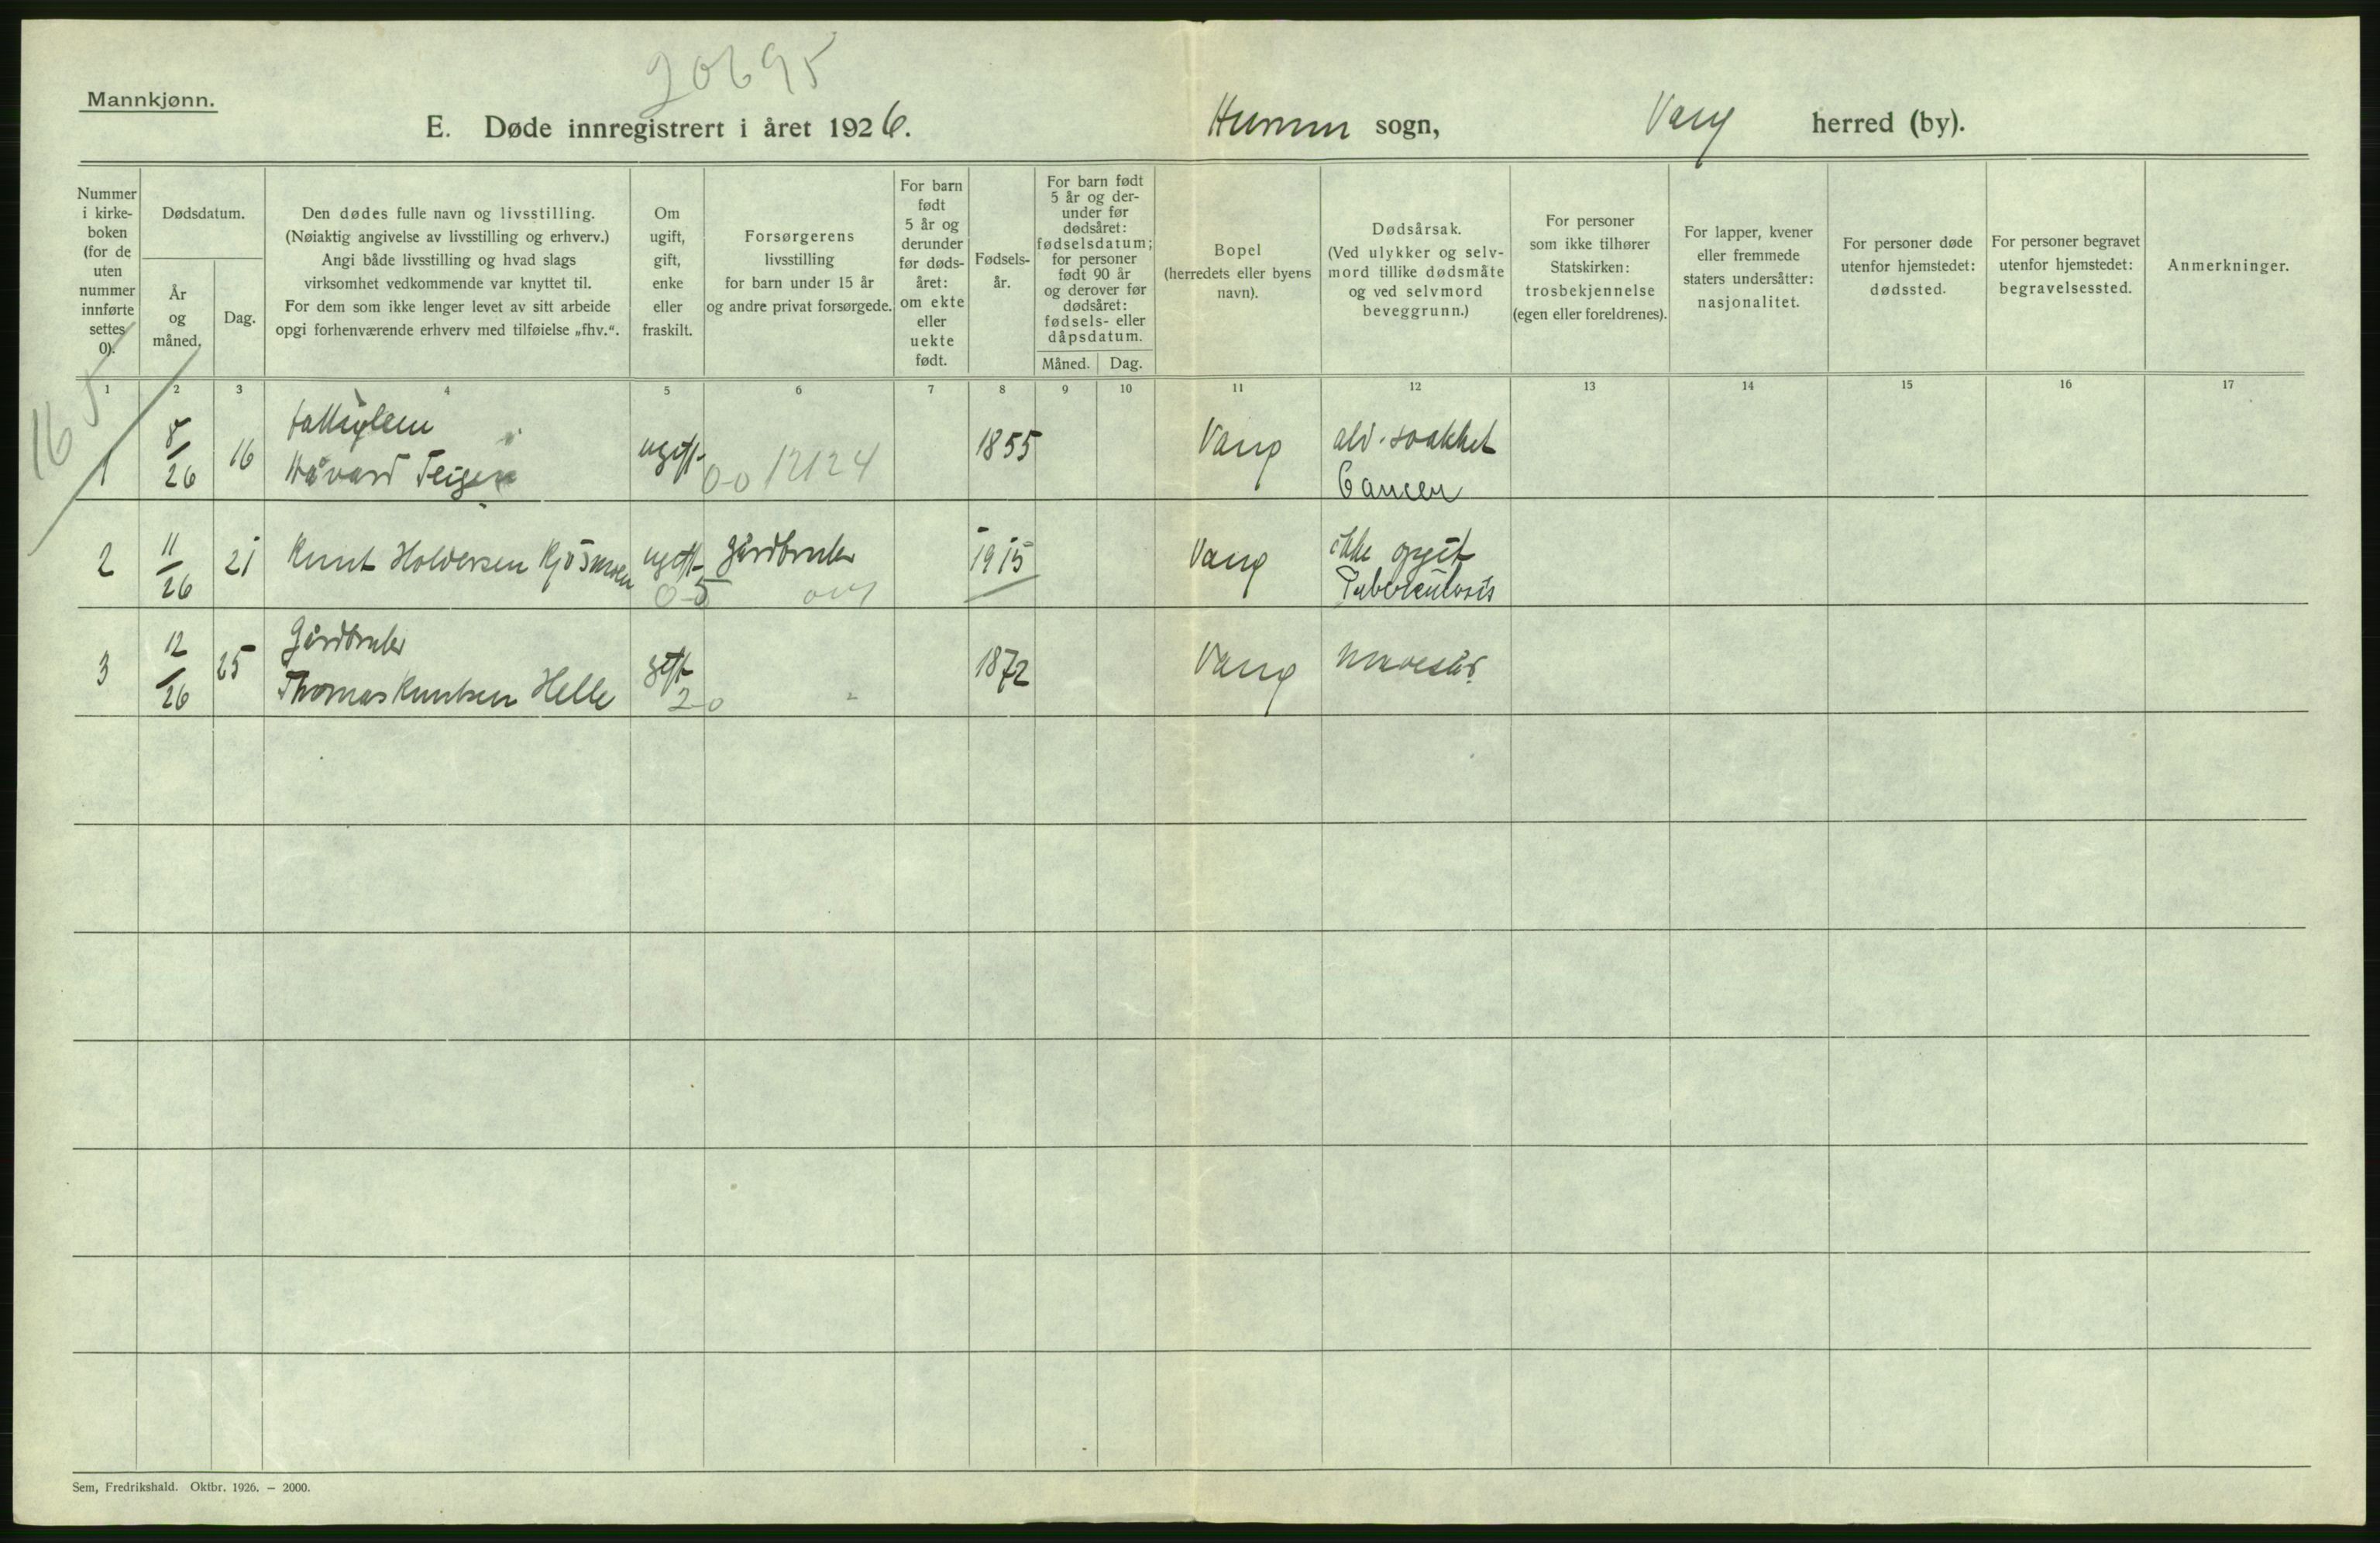 20695
Mannkjønn.
E. Døde innregistrert i året 1926.
Hurum sogn,
Vang herred (by).
Nummer i kirke-boken (for de uten nummer innførte settes 0).
Dødsdatum.
År og måned.
Dag.
Den dødes fulle navn og livsstilling.
(Nøiaktig angivelse av livsstilling og erhverv.)
Angi både livsstilling og hvad slags
virksomhet vedkommende var knyttet til.
For dem som ikke lenger levet av sitt arbeide
opgi forhenværende erhverv med tilføielse „fhv.“.
Om ugift, gift, enke eller fraskilt.
Forsørgerens
livsstilling
for barn under 15 år
og andre privat forsørgede.
For barn født 5 år og derunder før døds-året: om ekte eller uekte født.
Fødsels-år.
For barn født 5 år og der-under før dødsåret: fødselsdatum; for personer født 90 år og derover før dødsåret: fødsels- eller dåpsdatum.
Måned.
Dag.
Bopel
(herredets eller byens
navn).
Dødsårsak.
(Ved ulykker og selv-
mord tillike dødsmåte
og ved selvmord
beveggrunn.)
For personer
som ikke tilhører
Statskirken:
trosbekjennelse
(egen eller foreldrenes).
For lapper, kvener
eller fremmede
staters undersåtter:
nasjonalitet.
For personer døde
utenfor hjemstedet:
dødssted.
For personer begravet
utenfor hjemstedet:
begravelsessted.
Anmerkninger.
1 2 3 4 5 6 7 8 9 10 11 12 13 14 15 16 17
165
1 8/26 16 Håvard Teigen ugift 0-0 12124 1855 Vang ald. svakhet
Cancer
2 11/26 21 Knut Holdersen Kjøsmoen ugift gårdbruker 1915 Vang ikke opgit
0-5 Tuberculosis
3 12/26 25 Gårdbruker
Thomas Knutsen Helle gift 1872 Vang Mavesår
2-0
Sem, Fredrikshald. Oktbr. 1926. — 2000.